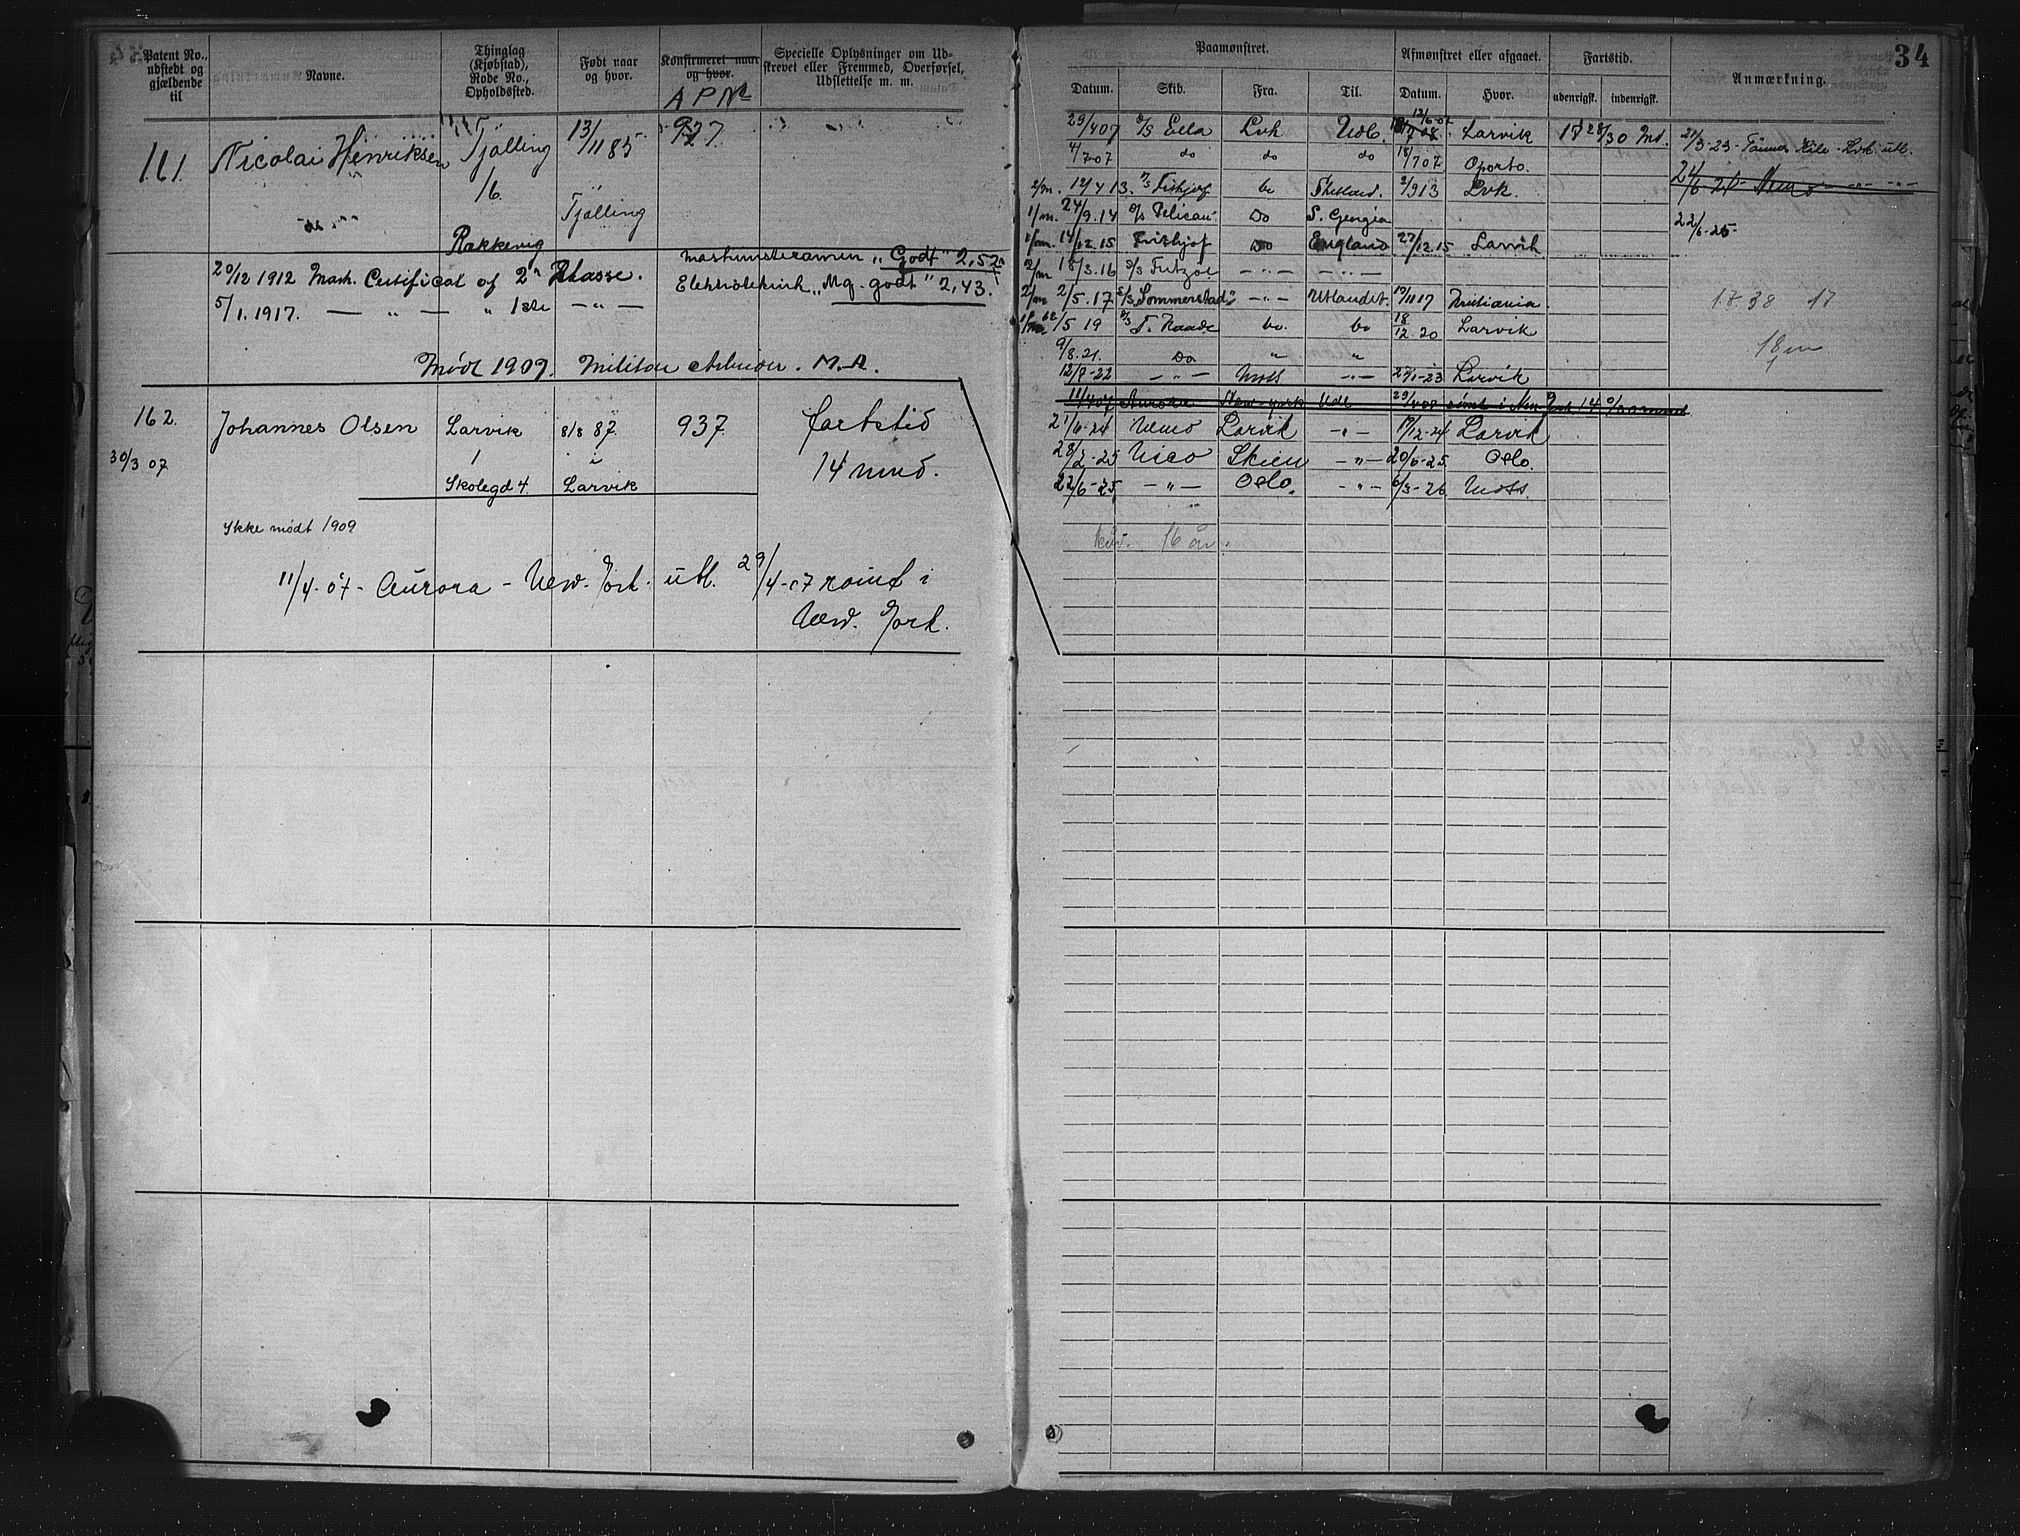 34
Patent No., udstedt og gjældende til
Navne.
Thinglag (Kjøbstad), Rode No., Opholdssted.
Født naar og hvor.
Konfirmeret naar og hvor.
A P No
Specielle Oplysninger om Udskrevet eller Fremmed, Overførsel, Udslettelse m. m.
Paamønstret.
Datum. Skib. Fra. Til.
Afmønstret eller afgaaet.
Datum. Hvor.
Fartstid.
udenrigsk. indenrigsk.
Anmærkning.
161. Nicolai Henriksen Tjølling 13/11 85 927.
16.
Tjølling
Rakkevig
20/12 1912 Mask. Certificat af 2n Klasse.
Maskinisteramen „ Godt " 2,52
5/1. 1917. — „ — „ 1ste — „ —
Elektroteknik „Mg. godt" 2,43.
Mødt 1909. Militær Arbeider. M.A.
162. Johannes Olsen Larvik 8/8 87. 937. fartstid
30/3 07 1 i 14 mnd.
Skolegd 4. Larvik
Ikke mødt 1909
11/4-07 - Aurora - New. York. utl. 29/4-07 rømt i
New. York.
29/4 07 S/S Eela Lvk Udl. Larvik 28/30 Md.
4/7 07 do do do 18/7 07 Oporto.
2/m. 12/4 13. S/S Fridtjof do Shetland. 2/9 13 Lvk.
1/m. 24/9. 14 S/S Pelican Do S. Georgia
1/m. 14/12. 15 Fridtjof Do England 27/12. 15 Larvik
2/m 18/3. 16 S/S Fritzøe — „ — — „ —
2/m 2/5. 17 S/S Sommerstad — „ — Utlandet. 19/11 17 Kristiania.
/5 19 S/S T. Kaade do. do 18/12. 20 Larvik
9/8. 21. Do „ „
12/8-22 — „ — Moss — „ — -23 Larvik
11/4 07 Aurora New-york Udl 29/4 07 rømt i New York 14
21/6-24 Nemo Larvik — „ — 17/12-24 Larvik
28/2-25 Nico Skien — „ — 20/6-25. Oslo.
22/6-25. — „ — Oslo. — „ — 6/3-26 Moss.
16 år.
21/3-23- Lvk. utl.
24/6-24- Nemo — „ —
22/6-25-
1738 17
18 m